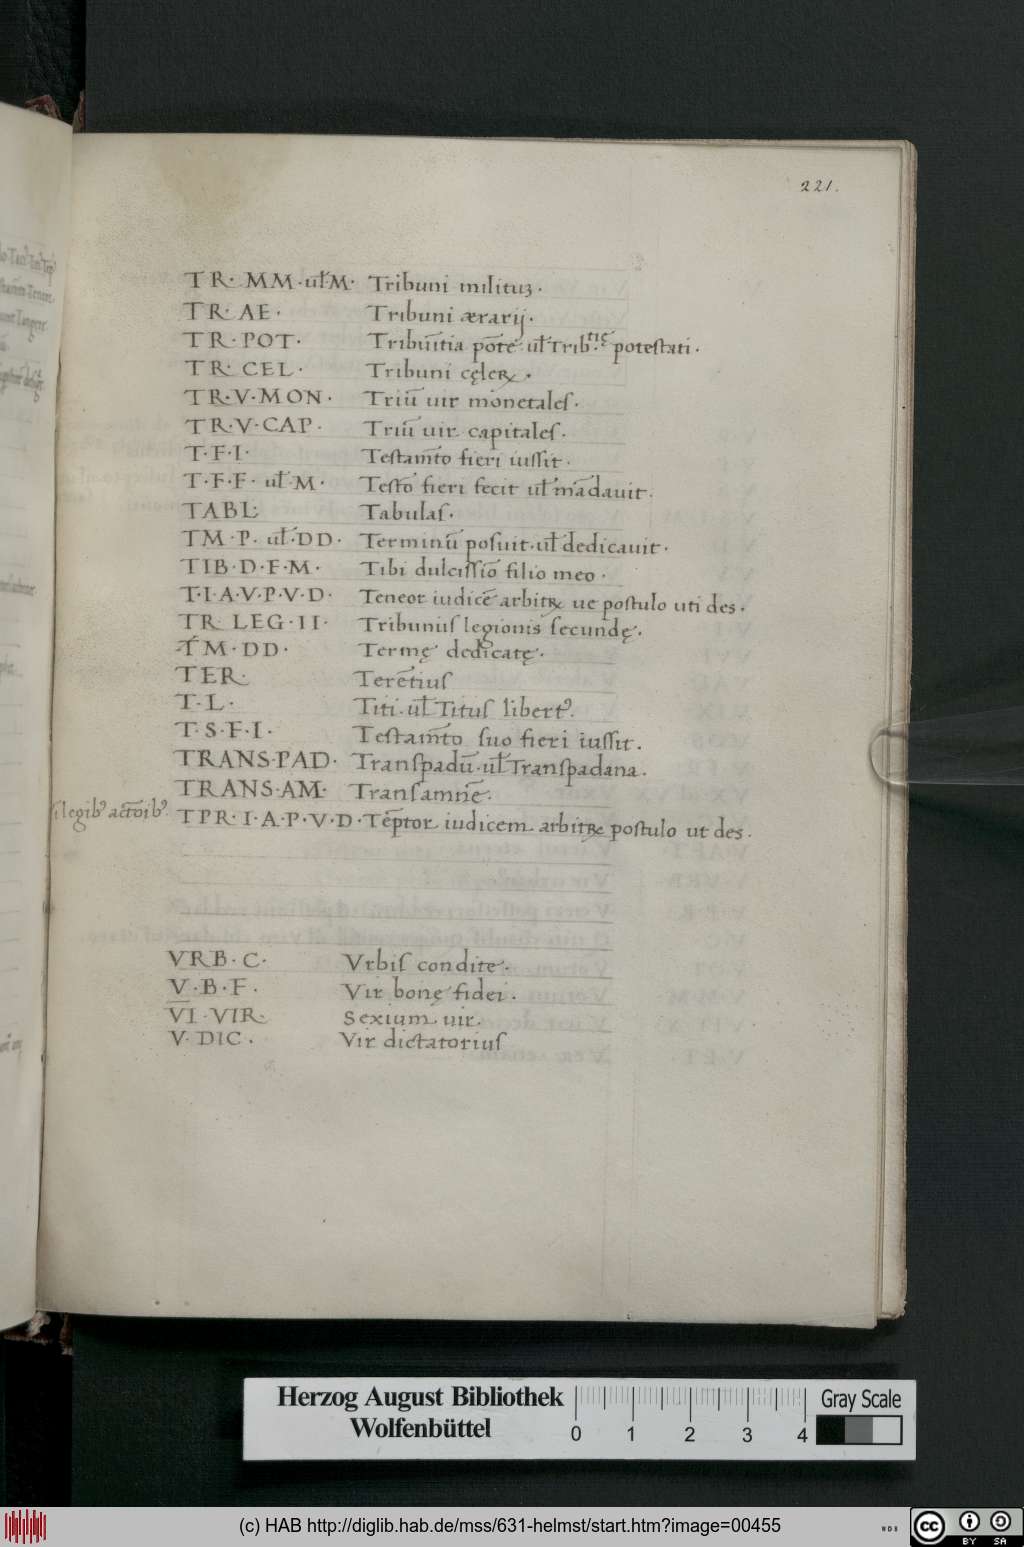 221.
TR· MM·ul̄·M· Tribuni milituꝫ·
TR· AE· Tribuni ærarij·
TR·POT· Tribūitia pōte· ul̄ Trib·tię potestati·
TR· CEL· Tribuni cęleꝝ·
TR·V·MON· Triū uir monetales·
TR·V·CAP· Triū uir capitales·
T·F·I· Testam̄to fieri iussit·
T·F·F· ul̄·M· Testō fieri fecit ul̄ mādauit·
TABL· Tabulas·
TM·P· ul̄·DD· Terminū posuit·ul̄ dedicauit·
TIB·D·F·M· Tibi dulcissīo filio meo·
T·I·A·V·P·V·D· Teneor iudicē arbitꝝ ue postulo uti des·
TR LEG·II· Tribunus legionis secundę·
TM·DD· Termę dedicatę·
TER· Terētius
T·L· Titi·ul̄ Titus libertꝰ·
T·S·F·I· Testam̄to suo fieri iussit·
TRANS·PAD· Transpadū·ul̄ Transpadana·
TRANS·AM· Transamnē·
ī legibꝰ actōibꝰ· TPR·I·A·P·V·D· Tēptor iudicem arbitꝝ postulo ut des·
VRB·C· Vrbis condite·
V·B·F· Vir bonę fidei·
V̄I·VIR· Sexium uir·
V·DIC· Vir dictatorius
Herzog August Bibliothek
Wolfenbüttel
0 1 2 3 4
Gray Scale
(c) HAB http://diglib.hab.de/mss/631-helmst/start.htm?image=00455
WDB
cc BY SA